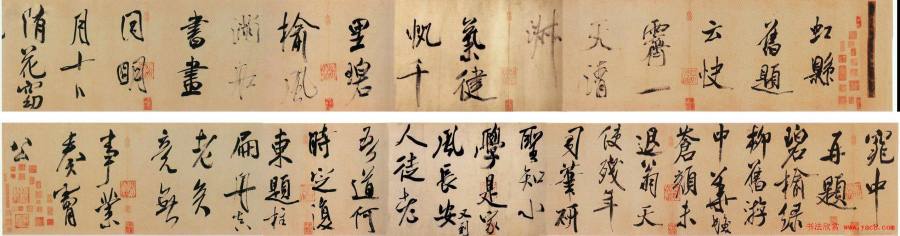 虹縣
舊題
云快
霽一
天清
淑
氣健
帆千
里碧
榆風
滿船
書畫
同明
月十日
隨花窈
窕中
再題
碧榆綠
柳舊游
中華髮
蒼顏未
退翁天
使殘年
司筆研
聖知小
學是家
風長安又到
人徒老
吾道何
時定復
東題柱
扁舟真
老矣
竟無
事業
奏膚
公
书法欣赏 www.yac8.com